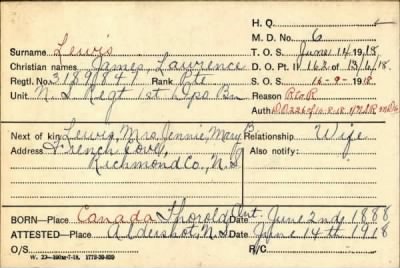 H. Q.
M. D. No. 6
Surname Lewis T. O. S. June 14 1918
Christian names James, Lawrence D. O. Pt. 11 162 of 13/6/18
Regtl. No. 3189841 Rank Pte S. O. S. 16-9-1918
Unit N. S. Regt 1st Depo Bn Reason
Auth
Next of kin Lewis, Mrs, Jennie, May Relationship Wife
Address French Cove, Also notify:
Richmond Co., N.S.
BORN—Place Canada Thorold Ont. Date June 2nd 1888
ATTESTED—Place Aldershot, N.S. Date June 14th 1918
O/S R/C